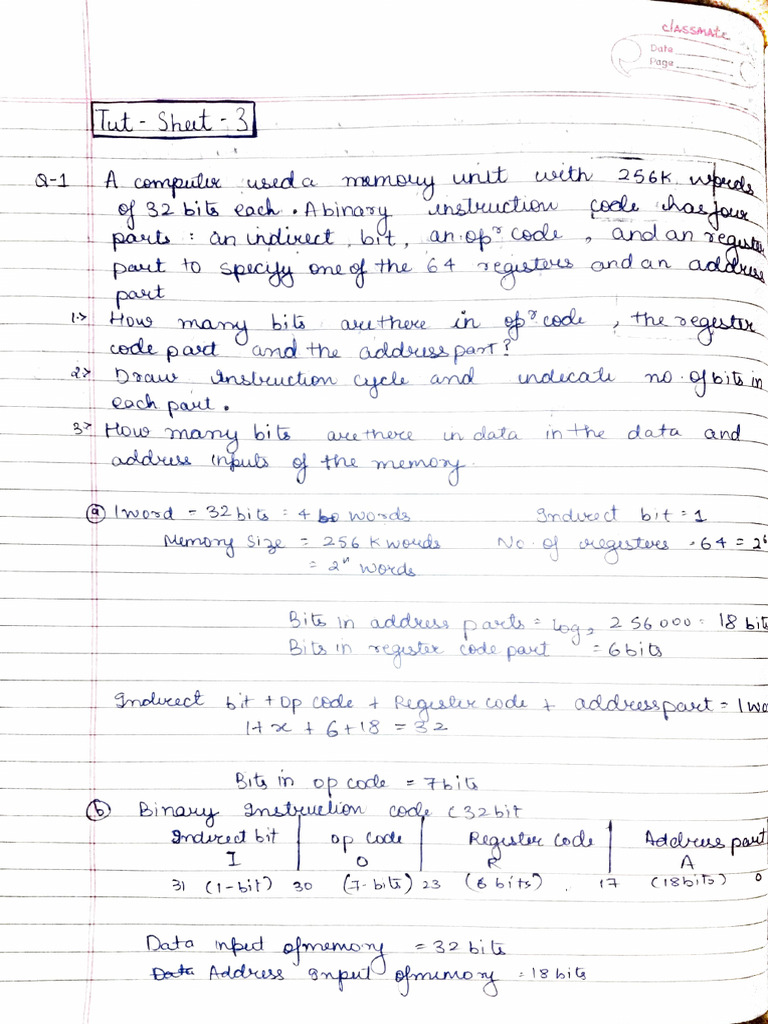 classmate
Date
Page
Tut - Sheet - 3
Q-1 A computer used a memory unit with 256K words
of 32 bits each. A binary instruction code has four
parts : an indirect bit, an opr code, and an register
part to specify one of the 64 registers and an address
part
1.> How many bits are there in opr code, the regester
code part and the address part?
2.> Draw instruction cycle and indicate no. of bits in
each part.
3.> How many bits are there in data in the data and
address inputs of the memory
(a) 1 word = 32 bits = 4 words Indirect bit = 1
Memory Size = 256 K words No. of registers = 64 = 2^6
= 2^n words
Bits in address parts = log2 256000 = 18 bit
Bits in register code part = 6 bits
Indirect bit + Op code + Register code + address part = 1 wo
1 + x + 6 + 18 = 32
Bits in op code = 7 bits
(b) Binary Instruction code (32 bit
Indirect bit | Op code | Register code | Address part
I O R A
31 (1-bit) 30 (7-bits) 23 (6 bits) 17 (18 bits) 0
Data input of memory = 32 bits
Address Input of memory = 18 bits